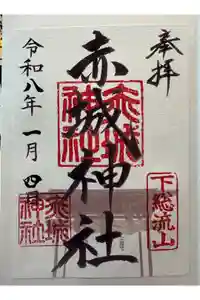 奉拝
赤城神社
赤城
神社
下総流山
令和八年一月四日
赤城
神社